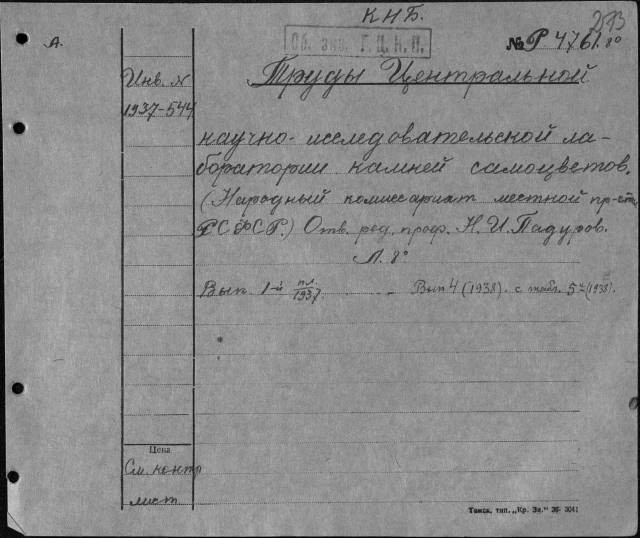 КНБ.
253
Об. экз. Г.Ц.К.П.
№ Р 4761.8°
А.
Инв. №
1937-544
Труды Центральной
научно-исследовательской ла-
боратории камней самоцветов.
(Народный комиссариат местной пр-сти
РСФСР.) Отв. ред. проф. Н. И. Падуров.
Л. 8°
Вып. 1-й пл. 1937. - - Вып 4 (1938). с табл. 5 (1938).
Цена
См. контр
лист
Томск, тип. „Кр. Зн." 36 3041